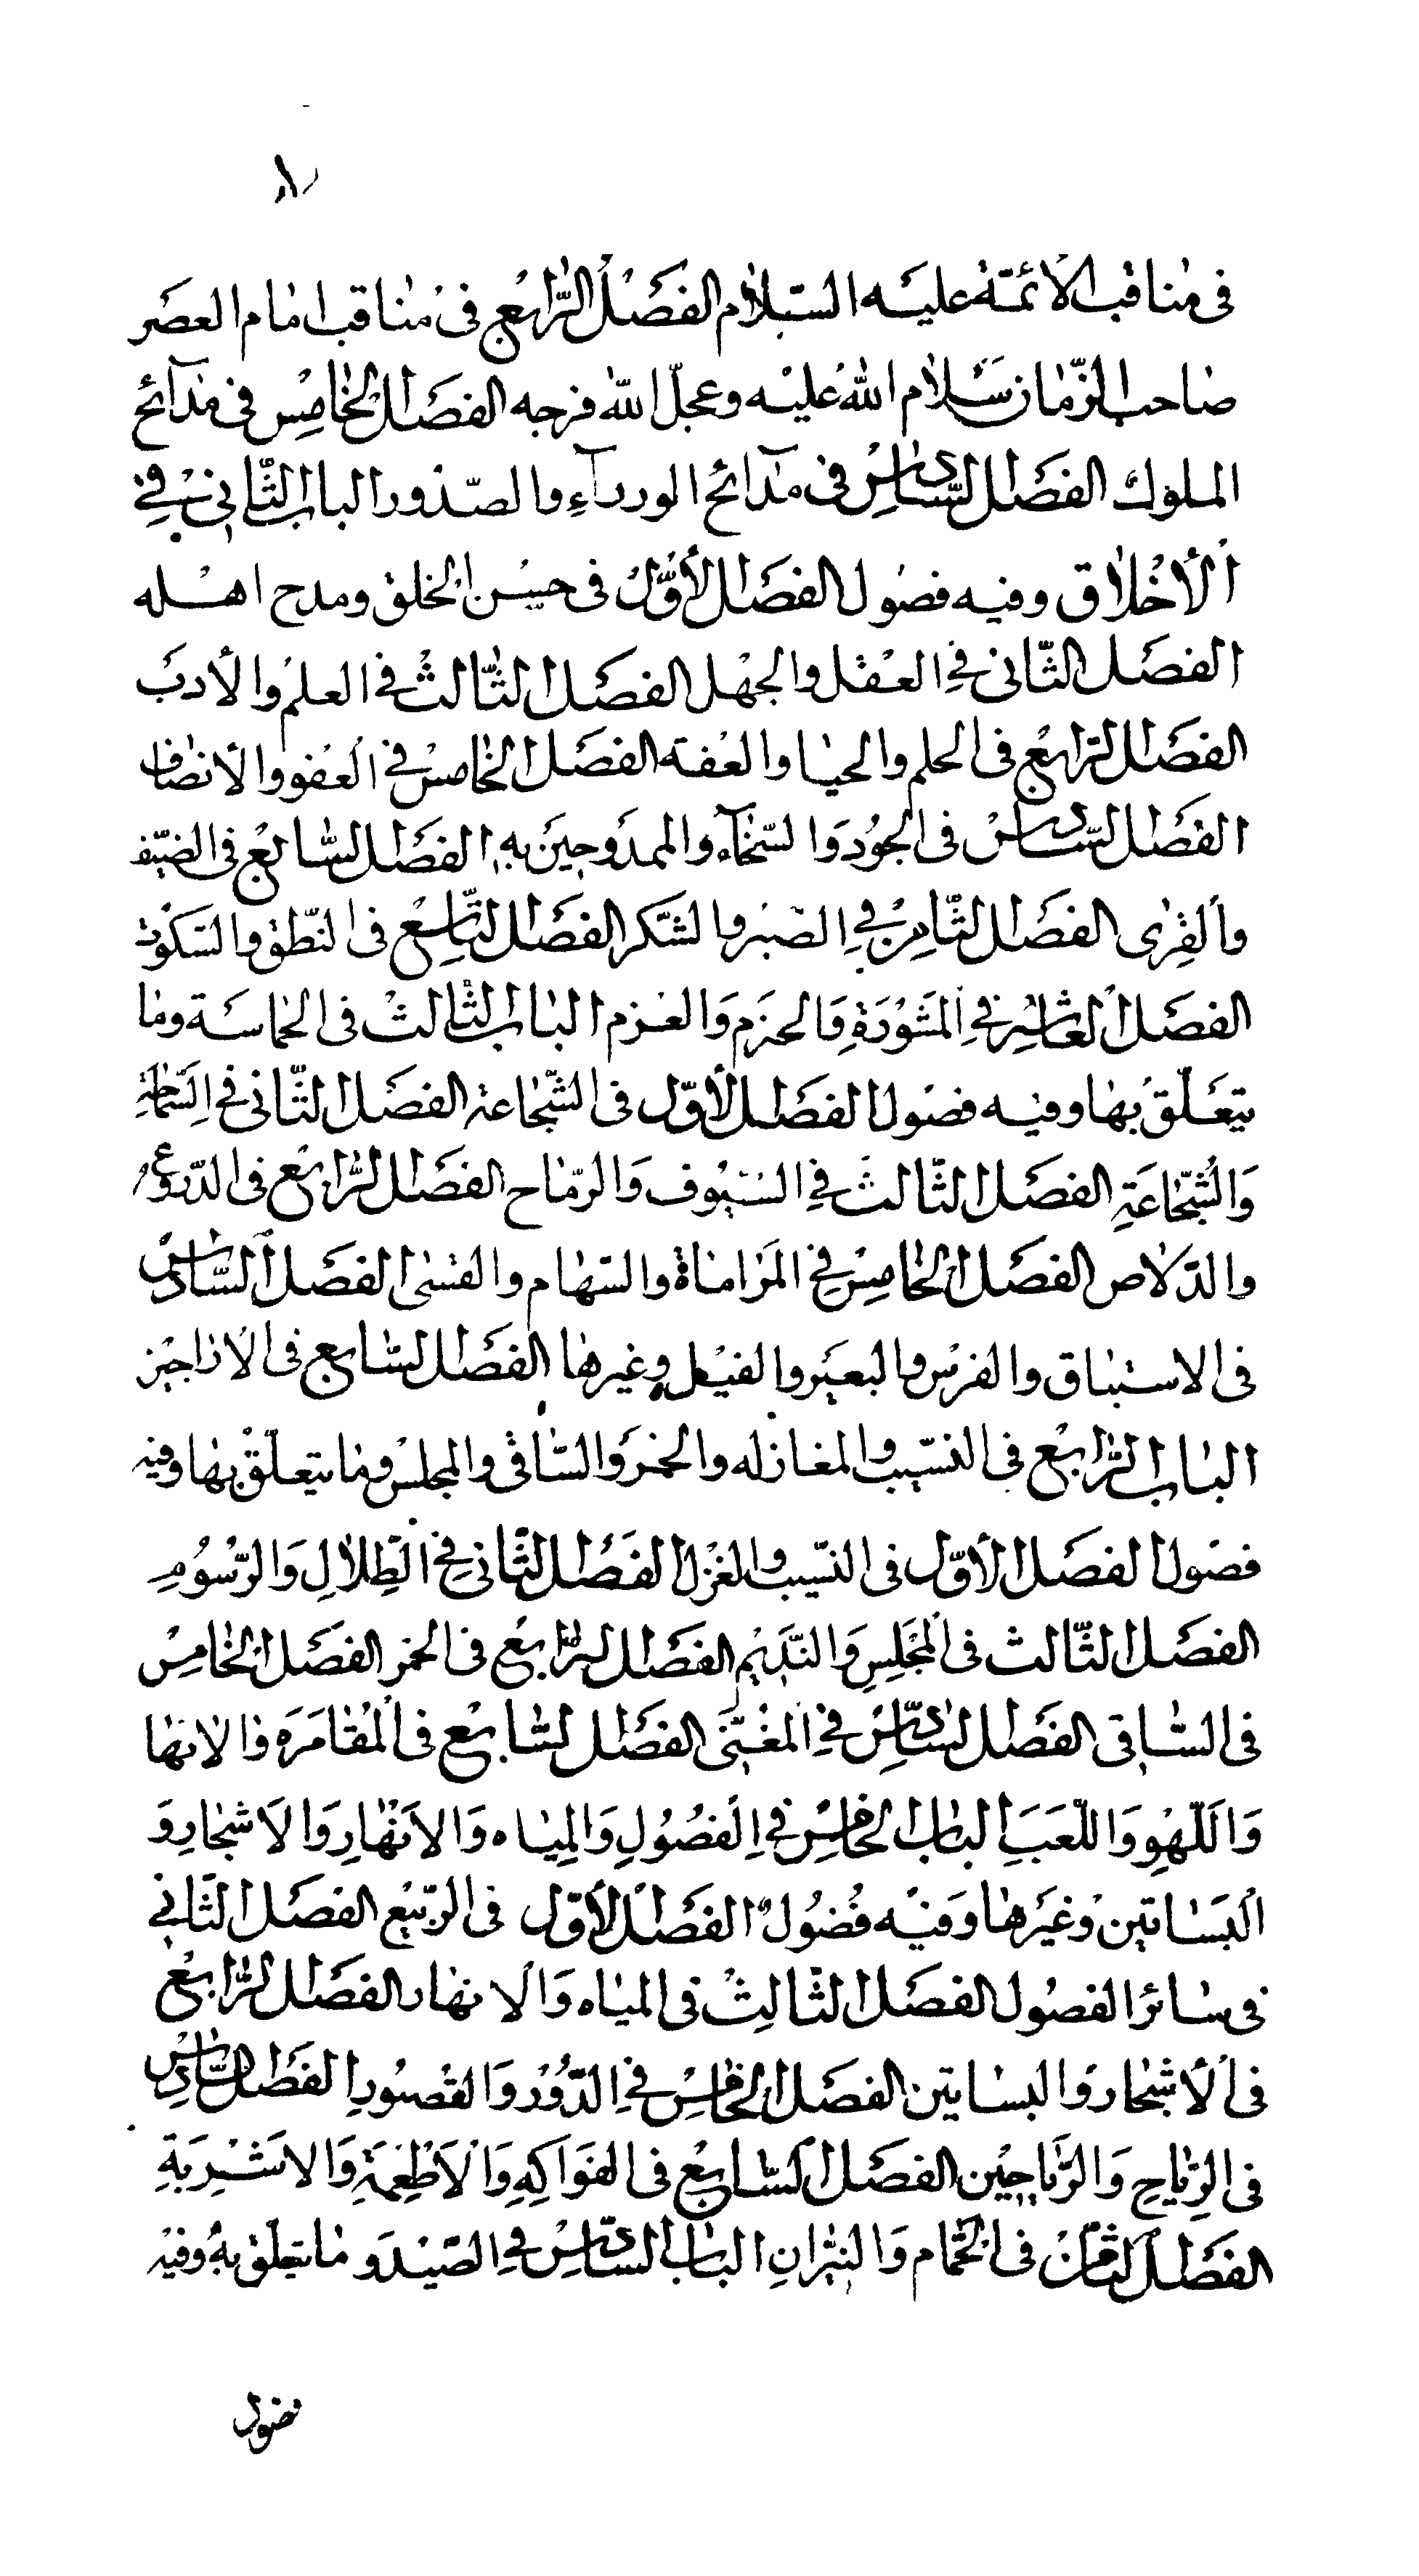 في مناقب الأئمّة عليه السّلام الفصل الرّابع في مناقب امام العصر
صاحب الزّمان سلام الله عليه وعجلّ الله فرجه الفصل الخامِس في مدآئح
الملوك الفصل السّادس في مدآئح الوردآء والصّدور الباب الثّاني في
الأخلاق وفيه فصول الفصل الأوّل في حسن الخلق ومدح اهله
الفصل الثّاني في العقل والجهل الفصل الثّالث في العلم والأدب
الفصل الرّابع في الحلم والحيا والعفة الفصل الخامس في العفو والأنصاف
الفصل السّادس في الجُود وَالسّخآء والممدَوحِينَ بِه الفصل السّابع في الضّيف
والقِرٰى الفصل الثّامن في الصّبر والشّكر الفصل التّاسع في النّطق والسّكوت
الفصل العاشر في المَشوْرَةِ وَالحزَم وَالعزم الباب الثّالث في الحماسَة وما
يتعَلّق بها وفيه فصول الفصل الأوّل في الشّجاعة الفصل الثّاني في السّماحَةِ
وَالشّجَاعَةِ الفصل الثّالث في السّيُوف وَالرّماح الفصل الرّابع في الدّروُع
والدّلاص الفصل الخامِس في المَراماة والسّهام والقسّى الفصل السّادس
في الاستباق والفرس والبعَير والفيْل وغيرها الفصل السّابع في الاراجيز
الباب الرّابع في النسّيب والمغازله والخمرَ والسّاقي والمجلسْ وما يتعلّق بها وفيه
فصول الفصل الأوّل في النسّيب والغزل الفصل الثّاني في الطِلالِ وَالرّسُومِ
الفصل الثّالث في المَجَلِسِ وَالنَّديم الفصل الرّابع في الخمر الفصل الخامِسْ
في السّاقي الفصل السّادس في المغُنّى الفصل السّابع في المُقامَرَه والانها
وَاللّهْوِ وَاللّعَبِ الباب الخامس في الفصُولِ وَالمِياه وَالاَنْهارِ وَالاَشجارِ وَ
البَسَاتين وغيَرها وَفيْه فُصُول الفصل الأوّل في الرّبيْع الفصل الثّاني
في سائر الفصُول الفصل الثّالِث في المياه وَالانهار الفصل الرّابع
في الأشجار وَالبساتين الفصل الخامس في الدّوُرْ وَالقصوُرِ الفصل السّادس
في الرِّياحِ وَالرَّياحيْن الفصل السّابع في الفوَاكِهِ وَالاَطْعِمَةِ وَالاشْرِبَةِ
الفصل الثّامن في الحّمام وَالنيرانِ الباب السّادس في الصّيْد وَمايتعلّق بهُ وفيْه
فصول